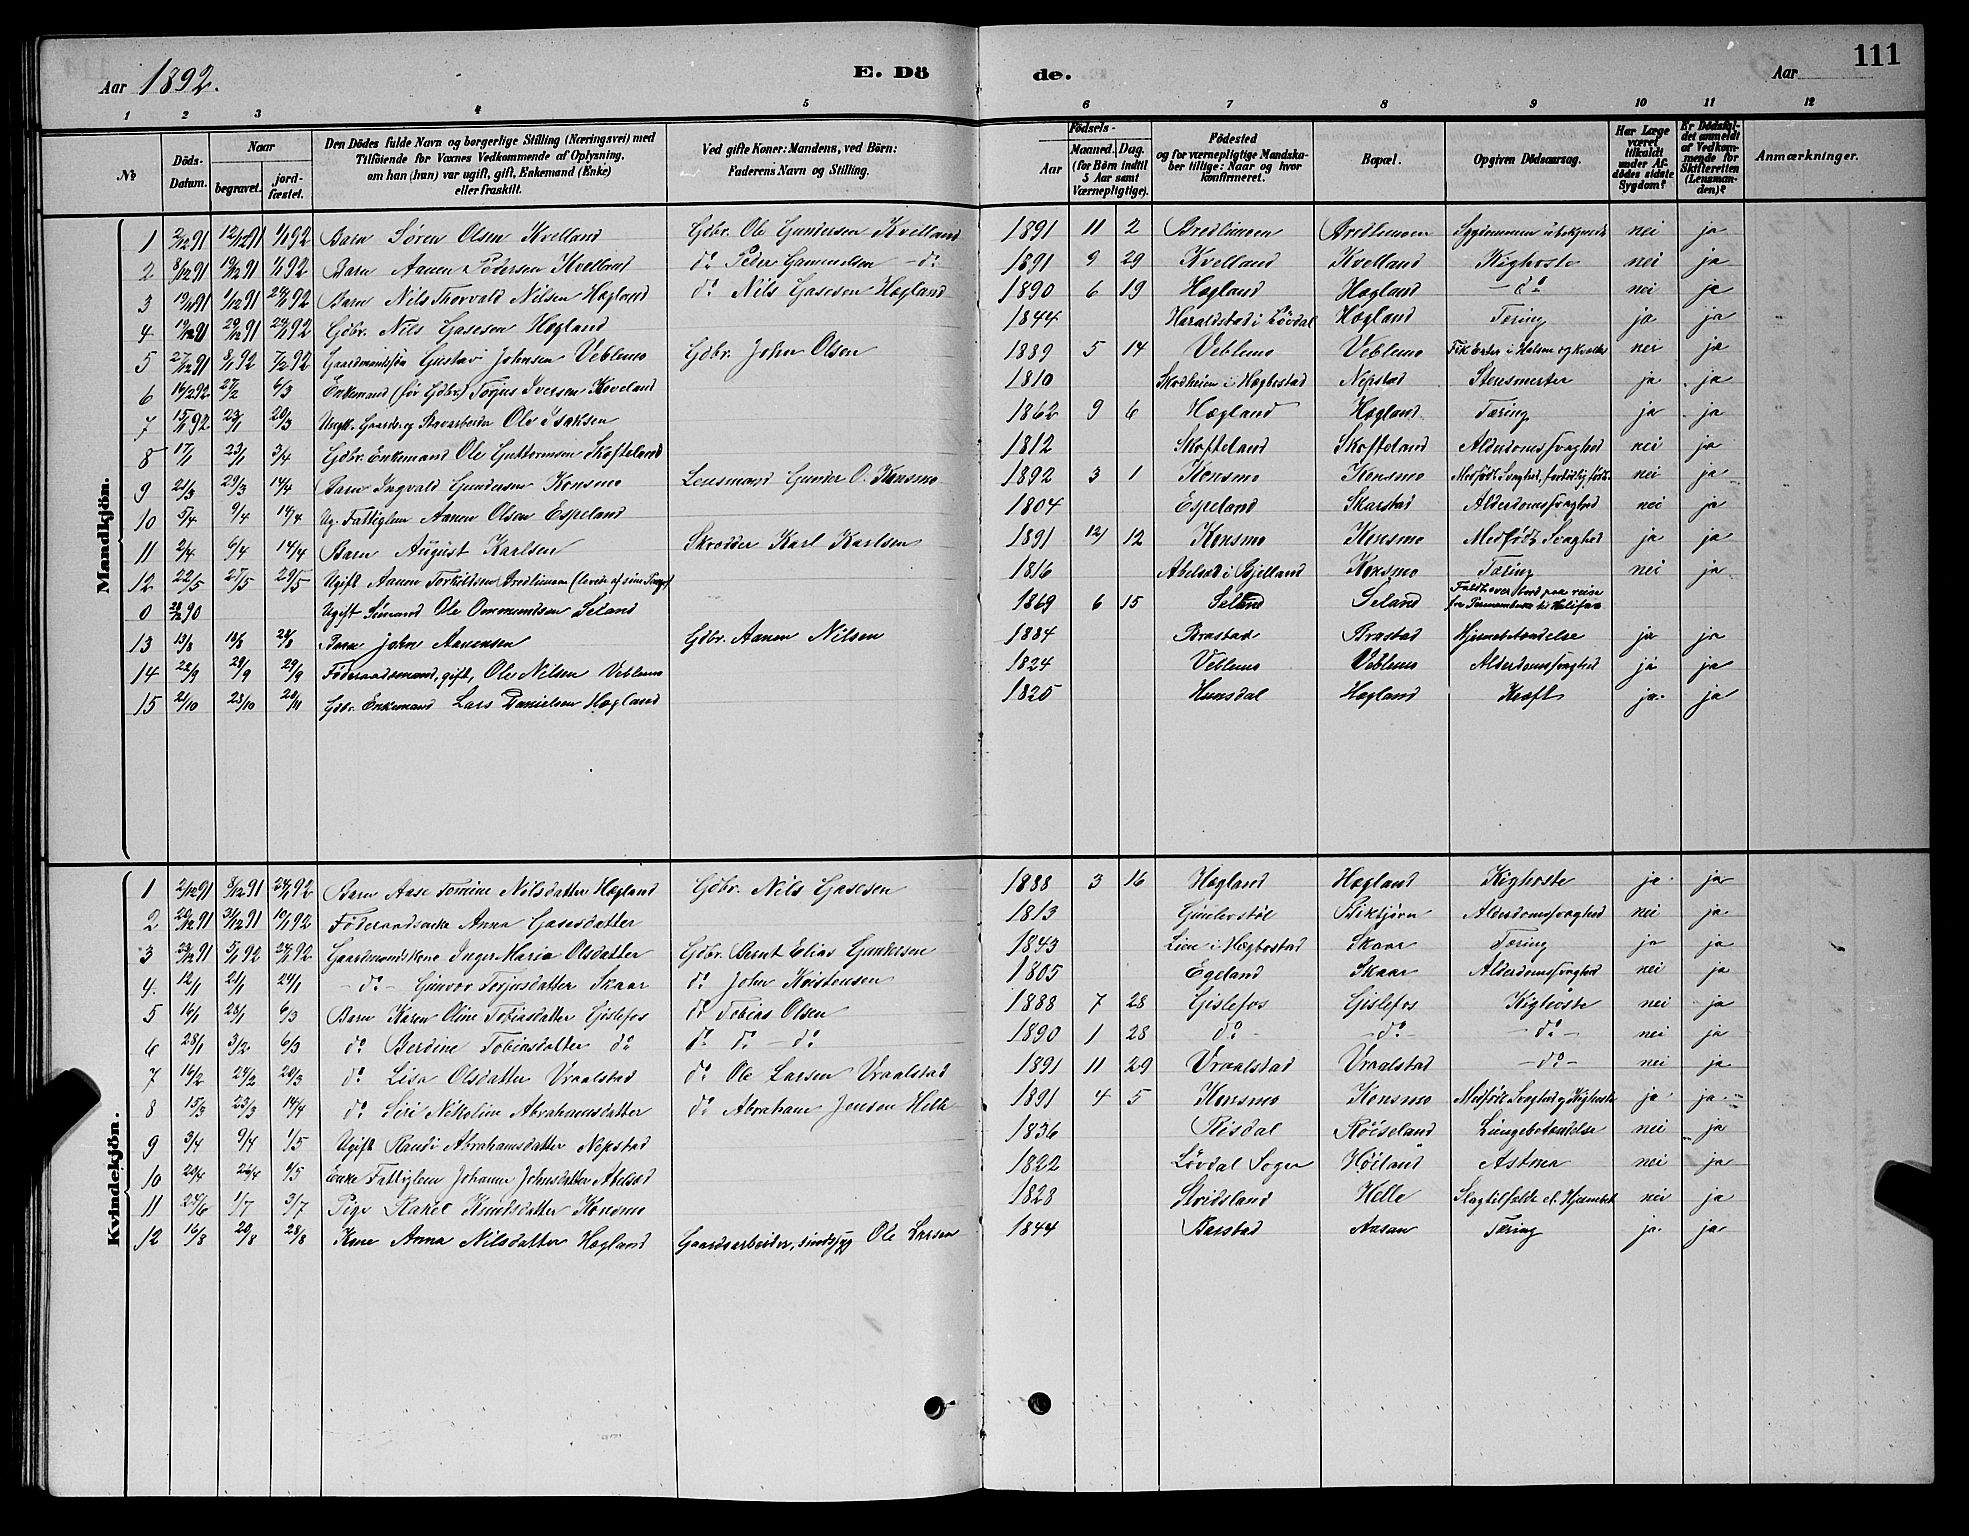 Aar 1892. E. Dö de. Aar 111
1 2 3 4 5 6 7 8 9 10 11 12
No
Döds-Datum.
Naar
begravet. jordfæstet.
Den Dödes fulde Navn og borgerlige Stilling (Næringsvei) med
Tilföiende for Voxnes Vedkommende af Oplysning,
om han (hun) var ugift, gift, Enkemand (Enke)
eller fraskilt.
Ved gifte Koner: Mandens, ved Börn:
Faderens Navn og Stilling.
Födsels-
Aar Maaned. Dag.
(for Börn indtil
5 Aar samt
Værnepligtige).
Födested
og for værnepligtige Mandskaber tillige: Naar og hvor
konfirmeret.
Bopæl.
Opgiven Dödsaarsag.
Har Læge
været
tilkaldt
under Afdödes sidste
Sygdom?
Er Dödsfaldet anmeldt
af Vedkommende for
Skifteretten
(Lensmanden)?
Anmærkninger.
Mandkjön.
1 2/12 91 12/12 91 1/1 92 Barn Sören Olsen Kvelland Gdbr. Ole Gundersen Kvelland 1891 11 2 Bredlimoen Bredlimoen Sygdommen ubekjendt nei ja
2 8/12 91 19/12 91 1/1 92 Barn Aanen Pedersen Kvelland do Peder Gammelsen - do 1891 9 29 Kvelland Kvelland Kighoste nei ja
3 1/12 91 24/1 92 Barn Nils Thorvald Nilsen Hægland do Nils Gasesen Hægland 1890 6 19 Hægland Hægland - do nei ja
4 19/12 91 29/12 91 24/1 92 Gdbr. Nils Gasesen Hægland 1844 Haraldstad i Lövdal Hægland Tæring ja ja
5 27/12 91 8/1 92 7/2 92 Gaardmandssön Gustav Johnsen Veblemo Gdbr. John Olsen 1889 5 14 Veblemo Veblemo Fik Erter i Halsen og kvaltes nei ja
6 14/2 92 27/2 6/3 Enkemand (för Gdbr.) Torjus Iversen Koveland 1810 Skodheien i Hægbostad Nepstad Stensmerter ja ja
7 15/1 92 23/1 20/3 Ungk. Gaards og Skovarbeider Ole Isaksen 1862 9 6 Hægland Hægland Tæring ja ja
8 17/1 23/1 3/4 Gdbr. Enkemand Ole Guttormsen Skofteland 1812 Skofteland Skofteland Alderdomssvaghed nei ja
9 21/3 29/3 14/4 Barn Ingvald Gundersen Konsmo Lensmand Gunder O. Konsmo 1892 3 1 Konsmo Konsmo Medfödt Svaghed, fortidlig född. nei ja
10 5/4 9/4 14/4 Ug. Fattiglem Aanen Olsen Espeland 1804 Espeland Skarstad Alderdomssvaghed nei ja
11 2/4 6/4 14/4 Barn August Karlsen Skrædder Karl Karlsen 1891 12 12 Konsmo Konsmo Medfödt Svaghed ja ja
12 22/5 27/5 29/5 Ugift Aanen Torkildsen Bredlimoen (levede af sine Penge) 1816 Abelsæd i Bjelland Konsmo Tæring nei ja
0 90 Ugift Sömand Ole Ommundsen Seland 1869 6 15 Seland Seland Faldt over bord paa reise
fra Pernambuco til Halifax
13 13/8 18/8 28/8 Barn John Aanensen Gdbr. Aanen Nilsen 1884 Brastad Brastad Hjernebetændelse ja ja
14 22/9 29/9 29/9 Föderaadsmand, gift, Ole Nilsen Veblemo 1824 Veblemo Veblemo Alderdomssvaghed ja ja
15 21/10 28/10 20/11 Gdbr. Enkemand Lars Danielsen Hægland 1825 Hunsdal Hægland Kræft ja ja
Kvindekjön.
1 2/12 91 8/12 91 24/1 92 Barn Aase Tomine Nilsdatter Hægland Gdbr. Nils Gasesen 1888 3 16 Hægland Hægland Kighoste ja ja
2 20/12 91 31/12 91 10/1 92 Föderaadsenke Anna Gasesdatter 1813 Gunlevstöl Stiktjörn Alderdomssvaghed nei ja
3 23/12 91 5/1 92 24/1 92 Gaardmandskone Inger Maria Olsdatter Gdbr. Bernt Elias Gundersen 1843 Lien i Hægbostad Skaar Tæring ja ja
4. 12/1 21/1 24/1 - do - Gunvor Torjusdatter Skaar do John Kristensen 1805 Egeland Skaar Alderdomssvaghed nei ja
5 16/1 28/1 6/3 Barn Karen Oline Tobiasdatter Gislefos do Tobias Olsen 1888 7 28 Gislefos Gislefos Kighoste nei ja
6 28/1 3/2 6/3 do Berdine Tobiasdatter do do do - do 1890 1 28 do - - do - - do - nei ja
7 16/2 24/2 20/3 do Lisa Olsdatter Vraalstad do Ole Larsen Vraalstad 1891 11 29 Vraalstad Vraalstad - do - nei ja
8 15/3 23/3 14/4 do Siri Nikoline Abrahamsdatter do Abraham Jensen Helle 1891 4 5 Konsmo Konsmo Medfödt Svaghed og Kighoste ja ja
9 3/4 9/4 1/5 Ugift Randi Abrahamsdatter Nepstad 1836 Risdal Röiseland Lungebetændelse nei ja
10 20/4 26/4 1/5 Enke Fattiglem Johanne Johnsdatter Abelsæd 1822 Lövdal Sogn Höiland Astma nei ja
11 25/6 1/7 3/7 Pige Rakel Knudsdatter Konsmo 1828 Stridsland Helle Slagtilfælde nei ja
12 16/8 20/8 28/8 Kone Anna Nilsdatter Hægland Gaardsarbeider, sindssyg Ole Larsen 1844 Barstad Aasan Tæring ja ja